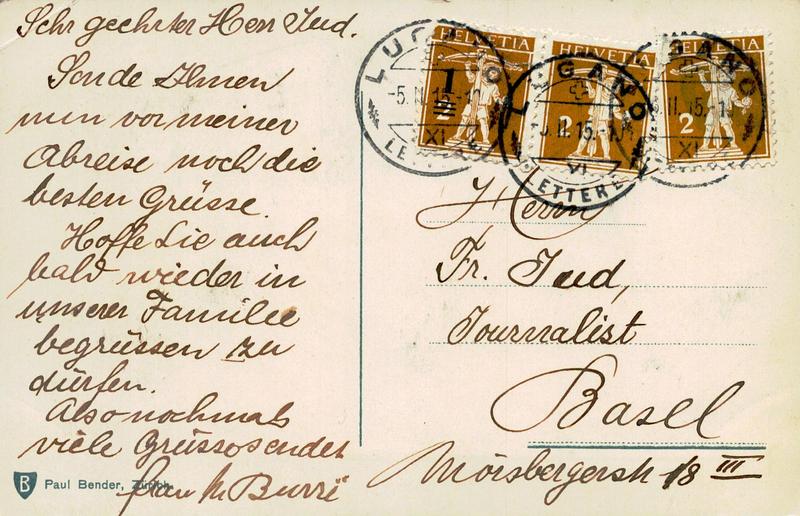 Sehr geehrter Herr Jud.
Sende Ihnen
nun vor meiner
Abreise noch die
besten Grüsse.
Hoffe Sie auch
bald wieder in
unserer Familie
begrüssen zu
dürfen.
Also nochmals
viele Grüsse sendet
Frau M Burri
B Paul Bender, Zürich
HELVETIA
HELVETIA
HELVETIA
1
2
2
LUGANO
-5.II.15.-
XI
LUGANO
5.II.15.-
VI
LETTERE
LUGANO
5.II.15.-
XI
Herrn
Fr. Jud,
Journalist
Basel
Mörsbergerstr 18 III